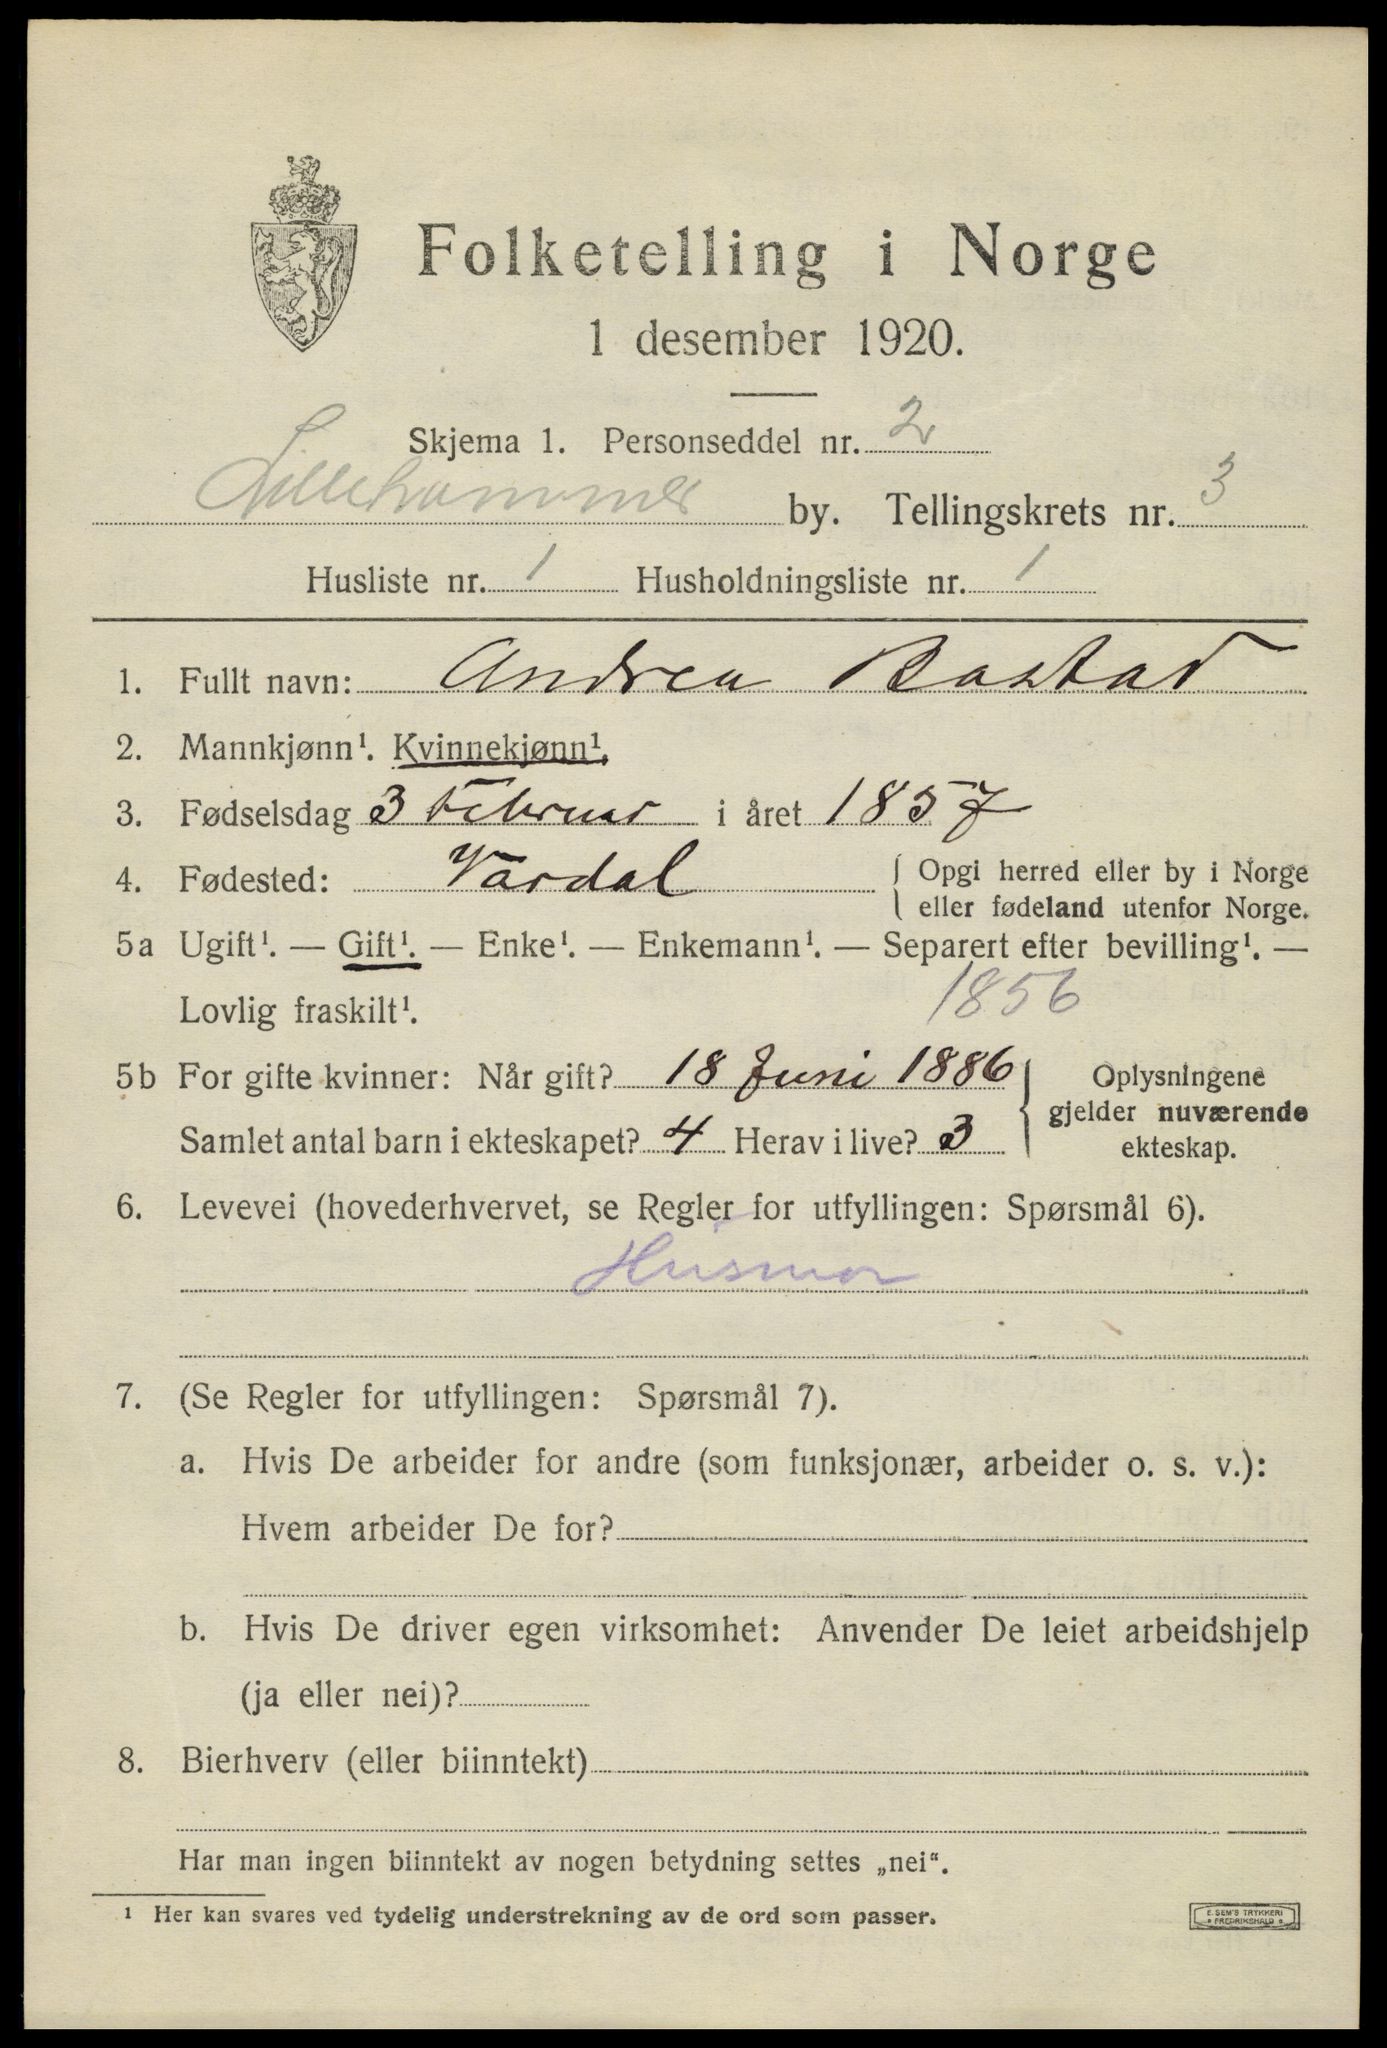 Folketelling i Norge
1 desember 1920.
Skjema 1. Personseddel nr. 2
Lillehammer by. Tellingskrets nr. 3
Husliste nr. 1 Husholdningsliste nr. 1
1. Fullt navn: Andrea Bastad
2. Mannkjønn¹. Kvinnekjønn¹.
3. Fødselsdag 3 Februar i året 1857
4. Fødested: Vardal { Opgi herred eller by i Norge
eller fødeland utenfor Norge.
5a Ugift¹. — Gift¹. — Enke¹. — Enkemann¹. — Separert efter bevilling¹. —
Lovlig fraskilt¹. 1856
5b For gifte kvinner: Når gift? 18 Juni 1886
Samlet antal barn i ekteskapet? 4 Herav i live? 3
} Oplysningene
gjelder nuværende
ekteskap.
6. Levevei (hovederhvervet, se Regler for utfyllingen: Spørsmål 6).
Husmor
7. (Se Regler for utfyllingen: Spørsmål 7).
a. Hvis De arbeider for andre (som funksjonær, arbeider o. s. v.):
Hvem arbeider De for?
b. Hvis De driver egen virksomhet: Anvender De leiet arbeidshjelp
(ja eller nei)?
8. Bierhverv (eller biinntekt)
Har man ingen biinntekt av nogen betydning settes „nei“.
¹ Her kan svares ved tydelig understrekning av de ord som passer.
E. SEM'S TRYKKERI
* FREDRIKSHALD *